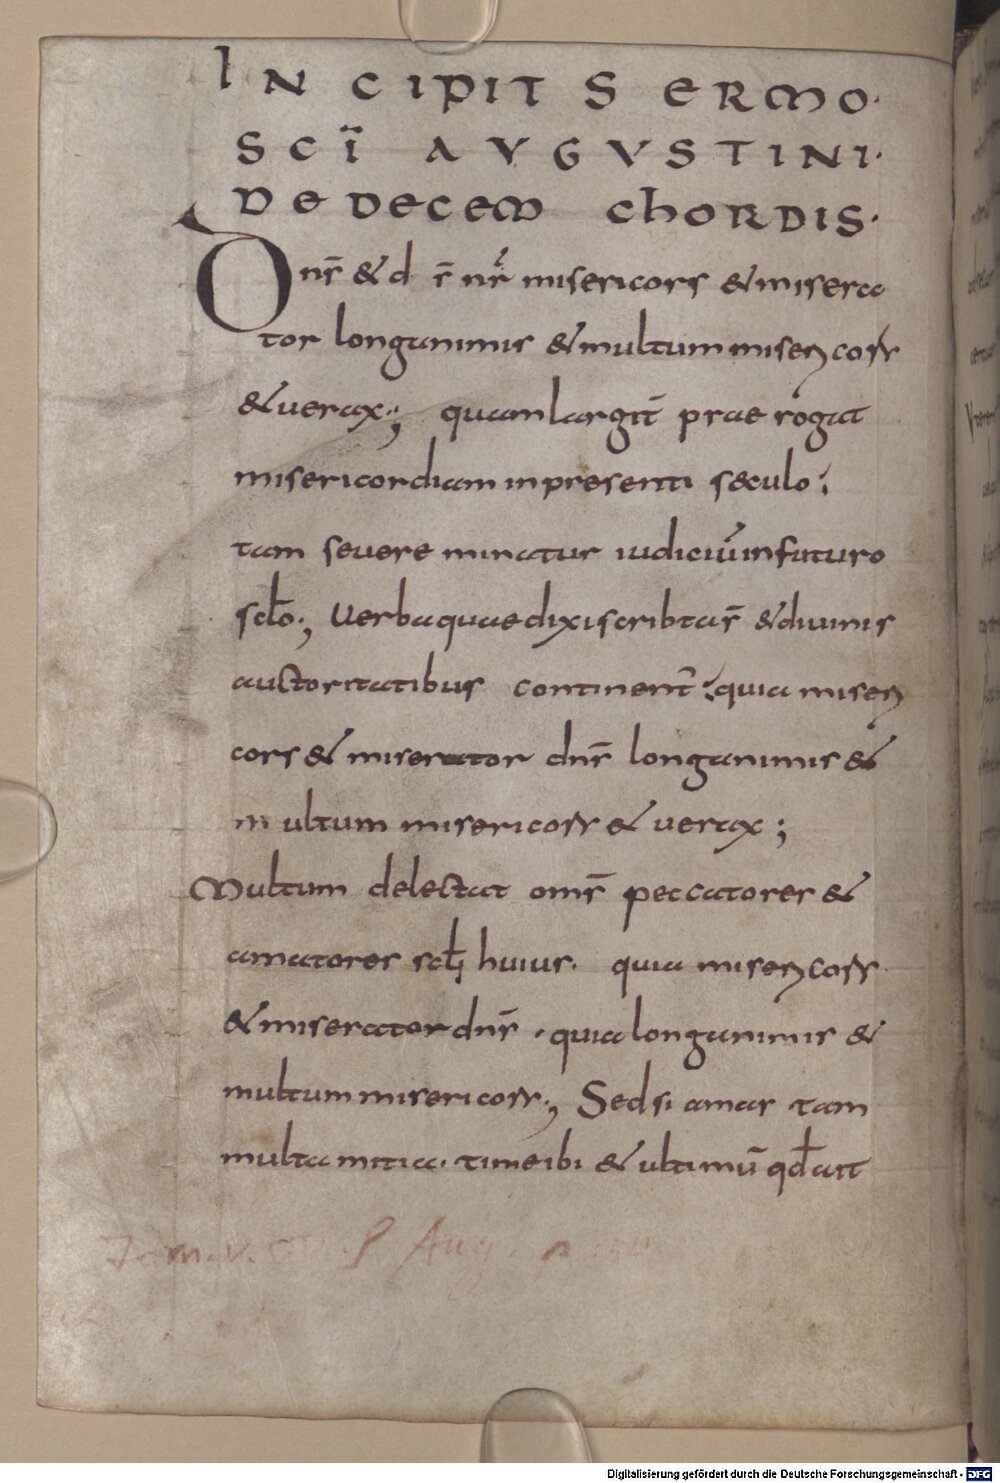 INCIPIT SERMO·
SCI AVGVSTINI·
DE DECEM CHORDIS·
Dns̄ & d s̄ nr̄ misericors & misera
tor longanimis & multum misericors
& uerax; quam largit̄ prae rogat
misericordiam in presenti sęculo;
tam seuere minatur iudiciū in futuro
scło; Uerba quae dixi scribta s̄ & diuinis
auctoritatibus continent̄; quia miseri
cors & miserator dns̄ longanimis &
multum misericors & uerax;
Multum delectat oms̄ peccatores &
amatores scłi huius· quia misericors·
& miserator dns̄ · quia longanimis &
multum misericors; Sed si amas tam
multa mitia· time ibi & ultimū qđ ait
Tom. v. Aug. p
Digitalisierung gefördert durch die Deutsche Forschungsgemeinschaft - DFG